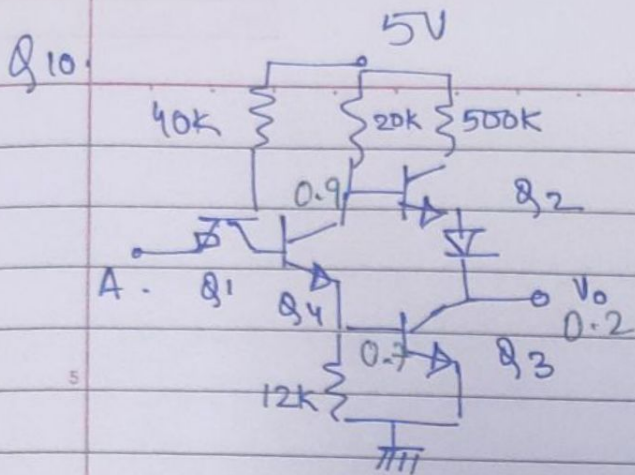 5V
Q10.
40K
20K
500K
0.9
Q2
A.
Q1
Q4
Vo
0.2
0.7
Q3
5
12K